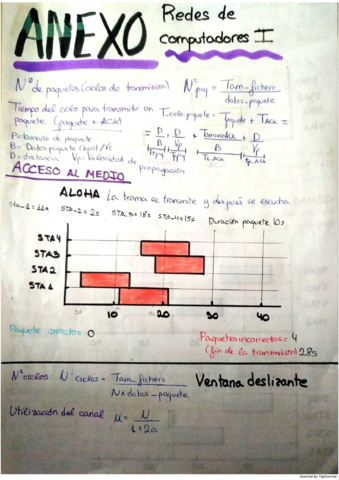 ANEXO
Redes de
computadores I
Nº de paquetes (ciclos de transmisión) Nº paq = Tam-fichero
datos-paquete
Tiempo del ciclo para transmitir un T.ciclo.paquete = Tpaquete + TACK =
paquete (paquete + ACK)
= P + D + TamañoACK + D
B Vp B Vp
P=tamaño de paquete
B= Datos paquete
D=distancia Vp=Velocidad de
propagación
ACCESO AL MEDIO
ALOHA La trama se transmite y después se escucha
STA-2=2s STA-3=18s STA-4=15s Duración paquete 10s
STA4
STA3
STA2
STA1
10 20 30 40
Paquete correctos= 0
Paquetes incorrectos= 4
(fin de la transmisión) 28s
Nº ciclos: Nº ciclos = Tam-fichero
N x datos-paquete
Ventana deslizante
Utilización del canal μ= N
1+2a
Scanned by TapScanner